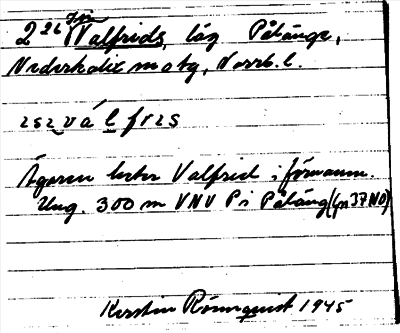 2²⁶ Jn Valfrids, läg Påläng,
Nederkalix matg, Norrb. l.
Ägaren heter Valfrid i förnamn.
Ung. 300 m VNV P i Påläng (Gn 37 NO)
Kerstin Rönnquist 1945